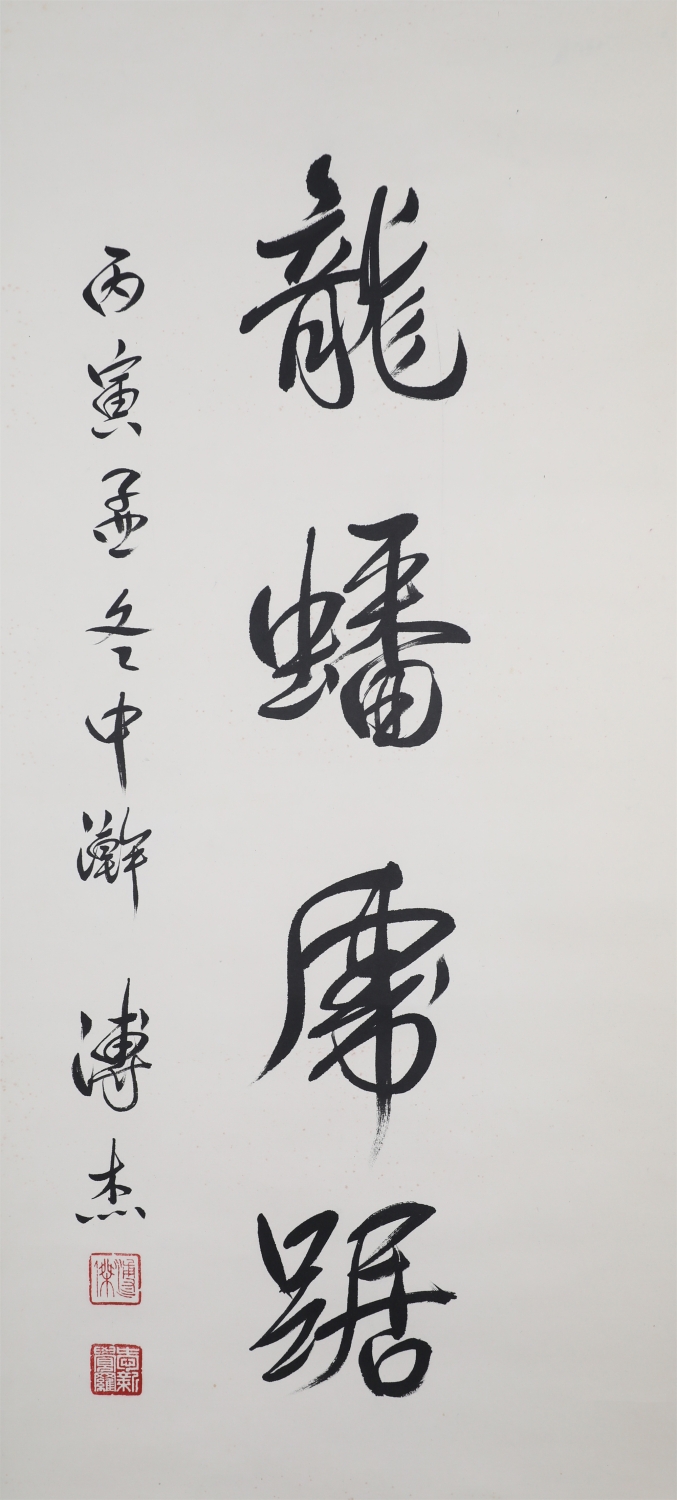 龍蟠虎踞
丙寅孟冬中澣 溥杰
溥傑